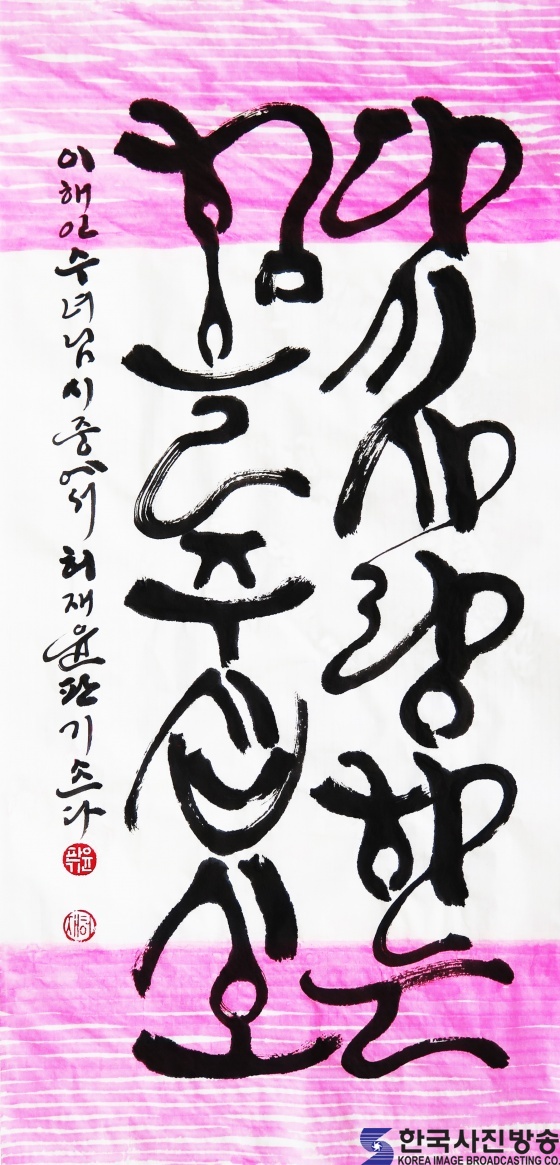 다시사랑하는
힘을주십시오
이해인수녀님시중에서 허재윤판기쓰다
허재
한국사진방송
KOREA IMAGE BROADCASTING CO.